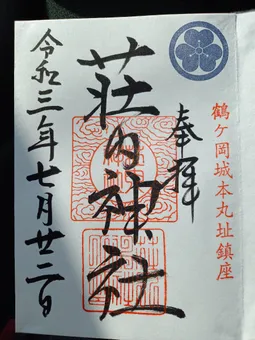 鶴ヶ岡城本丸址鎮座
奉拝
荘内神社
令和三年七月廿二日